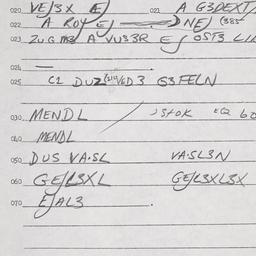 020 VE/3X E/ 021 A G3DEXT/
022 A ROY E/ NE/ (385
023 ZUG A VU33R E/ OST3
024 —
025 C1 DUZ D3 G3FELN
030 MENDL STOK 60
040 MENDL
050 DUS VA·SL VA·SL3N
060 GE/L3XL GE/L3XL3X
070 E/AL3